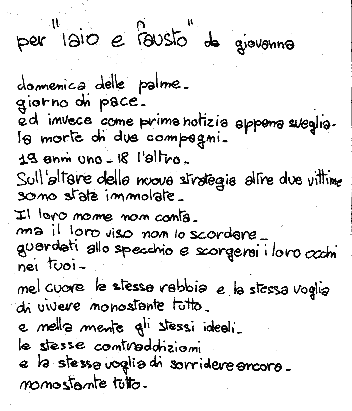 per "iaio e fausto" da giovanna
domenica delle palme-
giorno di pace-
ed invece come prima notizia appena sveglia-
la morte di due compagni-
19 anni uno - 18 l'altro-
Sull'altare della nuova strategia altre due vittime
sono state immolate-
Il loro nome non conta-
ma il loro viso non lo scordare-
guardati allo specchio e scorgerai i loro occhi
nei tuoi-
nel cuore la stessa rabbia e la stessa voglia
di vivere nonostante tutto-
e nella mente gli stessi ideali-
le stesse contraddizioni
e la stessa voglia di sorridere ancora-
nonostante tutto-